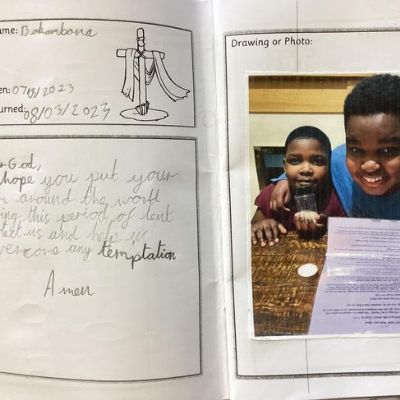 ame: Bokambana
en: 07/3/2023
urned: 08/03/2023
r God,
hope you put your
around the world
ing this period of lent
tect us and help us
vercome any temptation
Amen
Drawing or Photo: